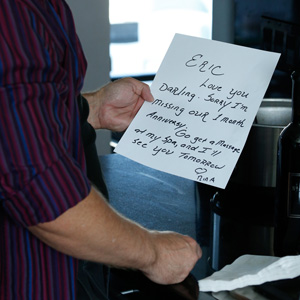 ERIC
Love you
Darling. Sorry I'm
missing our 1 month
Anniversary. Go get a Massage
at my Spa, and I'll
see you Tomorrow
♡
Nina